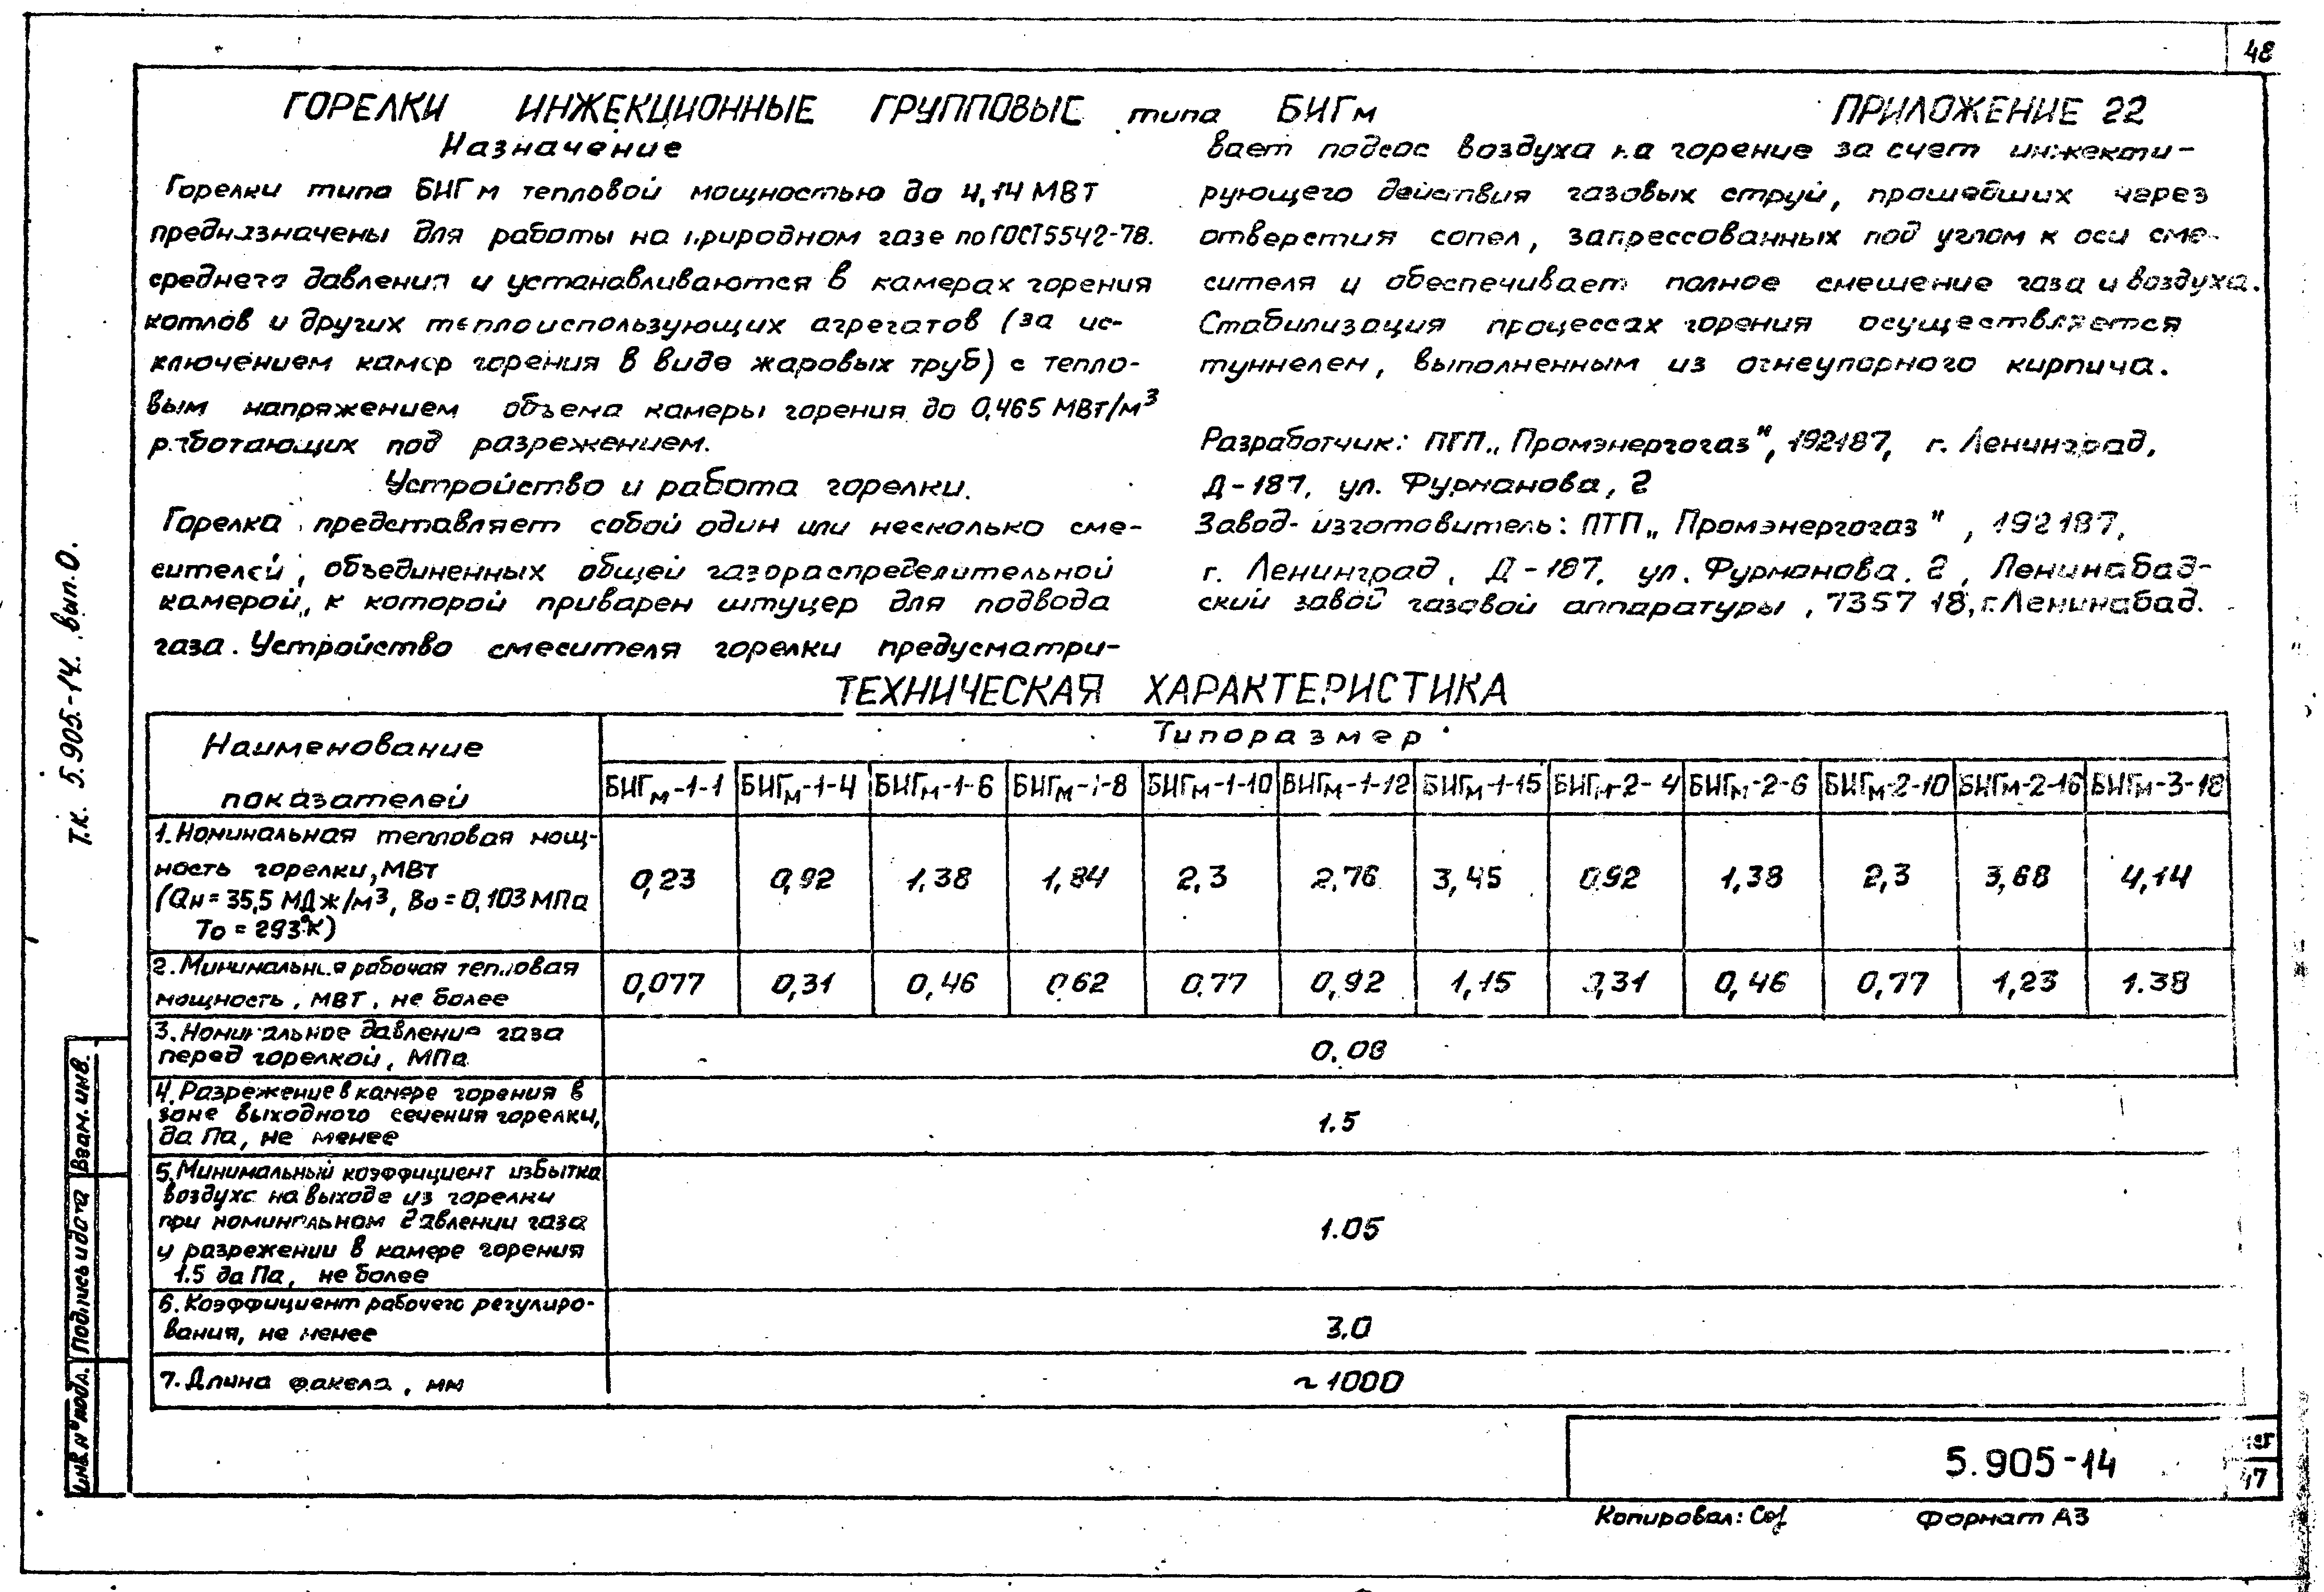 48
ГОРЕЛКИ ИНЖЕКЦИОННЫЕ ГРУППОВЫЕ типа БИГм
ПРИЛОЖЕНИЕ 22
Назначение
Горелки типа БИГм тепловой мощностью до 4,14 МВт
предназначены для работы на природном газе по ГОСТ 5542-78.
среднего давления и устанавливаются в камерах горения
котлов и других теплоиспользующих агрегатов (за ис-
ключением камер горения в виде жаровых труб) с тепло-
вым напряжением объема камеры горения до 0,465 МВт/м³
работающих под разрежением.
Устройство и работа горелки.
Горелка представляет собой один или несколько сме-
сителей, объединенных общей газораспределительной
камерой, к которой приварен штуцер для подвода
газа. Устройство смесителя горелки предусматри-
вает подсос воздуха на горение за счет инжекти-
рующего действия газовых струй, прошедших через
отверстия сопел, запрессованных под углом к оси сме-
сителя и обеспечивает полное смешение газа и воздуха.
Стабилизация процессах горения осуществляется
туннелем, выполненным из огнеупорного кирпича.
Разработчик: ПТП „Промэнергогаз", 192187, г. Ленинград,
Д-187, ул. Фурманова, 2
Завод-изготовитель: ПТП „Промэнергогаз", 192187,
г. Ленинград, Д-187, ул. Фурманова. 2, Ленинабад-
ский завод газовой аппаратуры, 735718, г. Ленинабад.
ТЕХНИЧЕСКАЯ ХАРАКТЕРИСТИКА
Наименование показателей
Типоразмер
БИГм-1-1 БИГм-1-4 БИГм-1-6 БИГм-1-8 БИГм-1-10 БИГм-1-12 БИГм-1-15 БИГм-2-4 БИГм-2-6 БИГм-2-10 БИГм-2-16 БИГм-3-18
1. Номинальная тепловая мощ-
ность горелки, МВт
(Qн = 35,5 МДж/м³, Во = 0,103 МПа
То = 293°К)
0,23 0,92 1,38 1,84 2,3 2,76 3,45 0,92 1,38 2,3 3,68 4,14
2. Минимальная рабочая тепловая
мощность, МВт, не более
0,077 0,31 0,46 0,62 0,77 0,92 1,15 0,31 0,46 0,77 1,23 1.38
3. Номинальное давление газа
перед горелкой, МПа
0.08
4. Разрежение в камере горения в
зоне выходного сечения горелки,
да Па, не менее
1.5
5. Минимальный коэффициент избытка
воздуха на выходе из горелки
при номинальном давлении газа
и разрежении в камере горения
1.5 да Па, не более
1.05
6. Коэффициент рабочего регулиро-
вания, не менее
3.0
7. Длина факела, мм
~1000
5.905-14
47
Копировал:
Формат А3
Т.К. 5.905-14. вып. 0.
Взам. инв.
Подпись и дата
Инв. № подл.